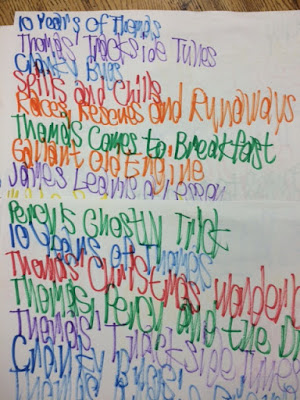 10 Years of Thomas
Thomas' Trackside Tunes
Cranky Bugs
Spills and Chills
Races, Rescues and Runaways
Thomas Comes to Breakfast
Gallant Old Engine
James Learns a Lesson
Percy's Ghostly Trick
10 Years of Thomas
Thomas' Christmas Wonderl
Thomas, Percy and the Dr
Thomas' Trackside Tunes
Cranky Bugs